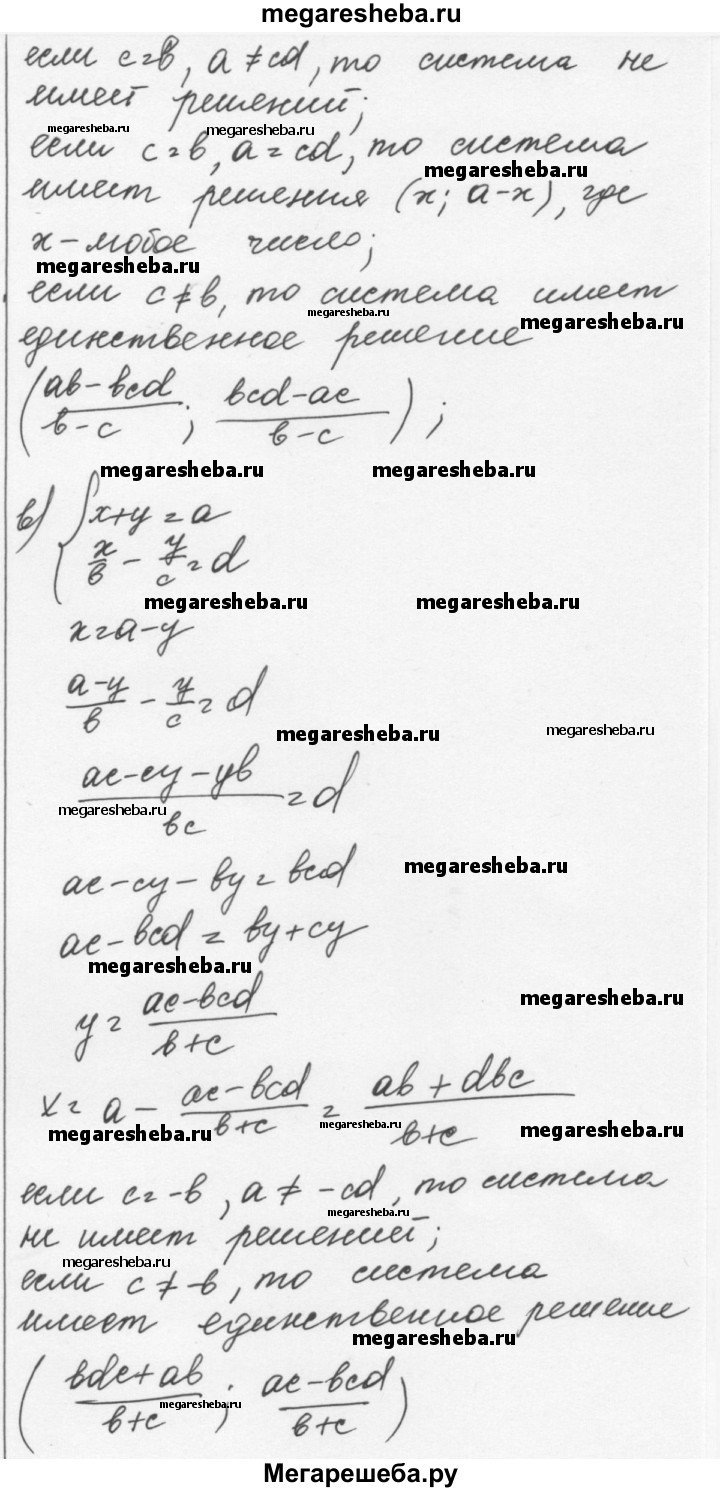 megaresheba.ru
если c=b, a≠cd, то система не
имеет решений;
megaresheba.ru megaresheba.ru
если c=b, a=cd, то система
megaresheba.ru
имеет решения (x; a-x), где
x-любое число;
megaresheba.ru
если c≠b, то система имеет
megaresheba.ru megaresheba.ru
единственное решение
((ab-bcd)/(b-c); (bcd-ac)/(b-c));
megaresheba.ru megaresheba.ru
в) { x+y=a
x/b - y/c = d
megaresheba.ru megaresheba.ru
x=a-y
(a-y)/b - y/c = d
megaresheba.ru megaresheba.ru
(ac-cy-yb)/bc = d
megaresheba.ru
ac-cy-by=bcd
megaresheba.ru
ac-bcd=by+cy
megaresheba.ru
y = (ac-bcd)/(b+c)
megaresheba.ru
x = a - (ac-bcd)/(b+c) = (ab+dbc)/(b+c)
megaresheba.ru megaresheba.ru megaresheba.ru
если c=-b, a≠-cd, то система
megaresheba.ru
не имеет решений;
megaresheba.ru
если c≠-b, то система
имеет единственное решение
megaresheba.ru
((bdc+ab)/(b+c); (ac-bcd)/(b+c))
megaresheba.ru
Мегарешеба.ру